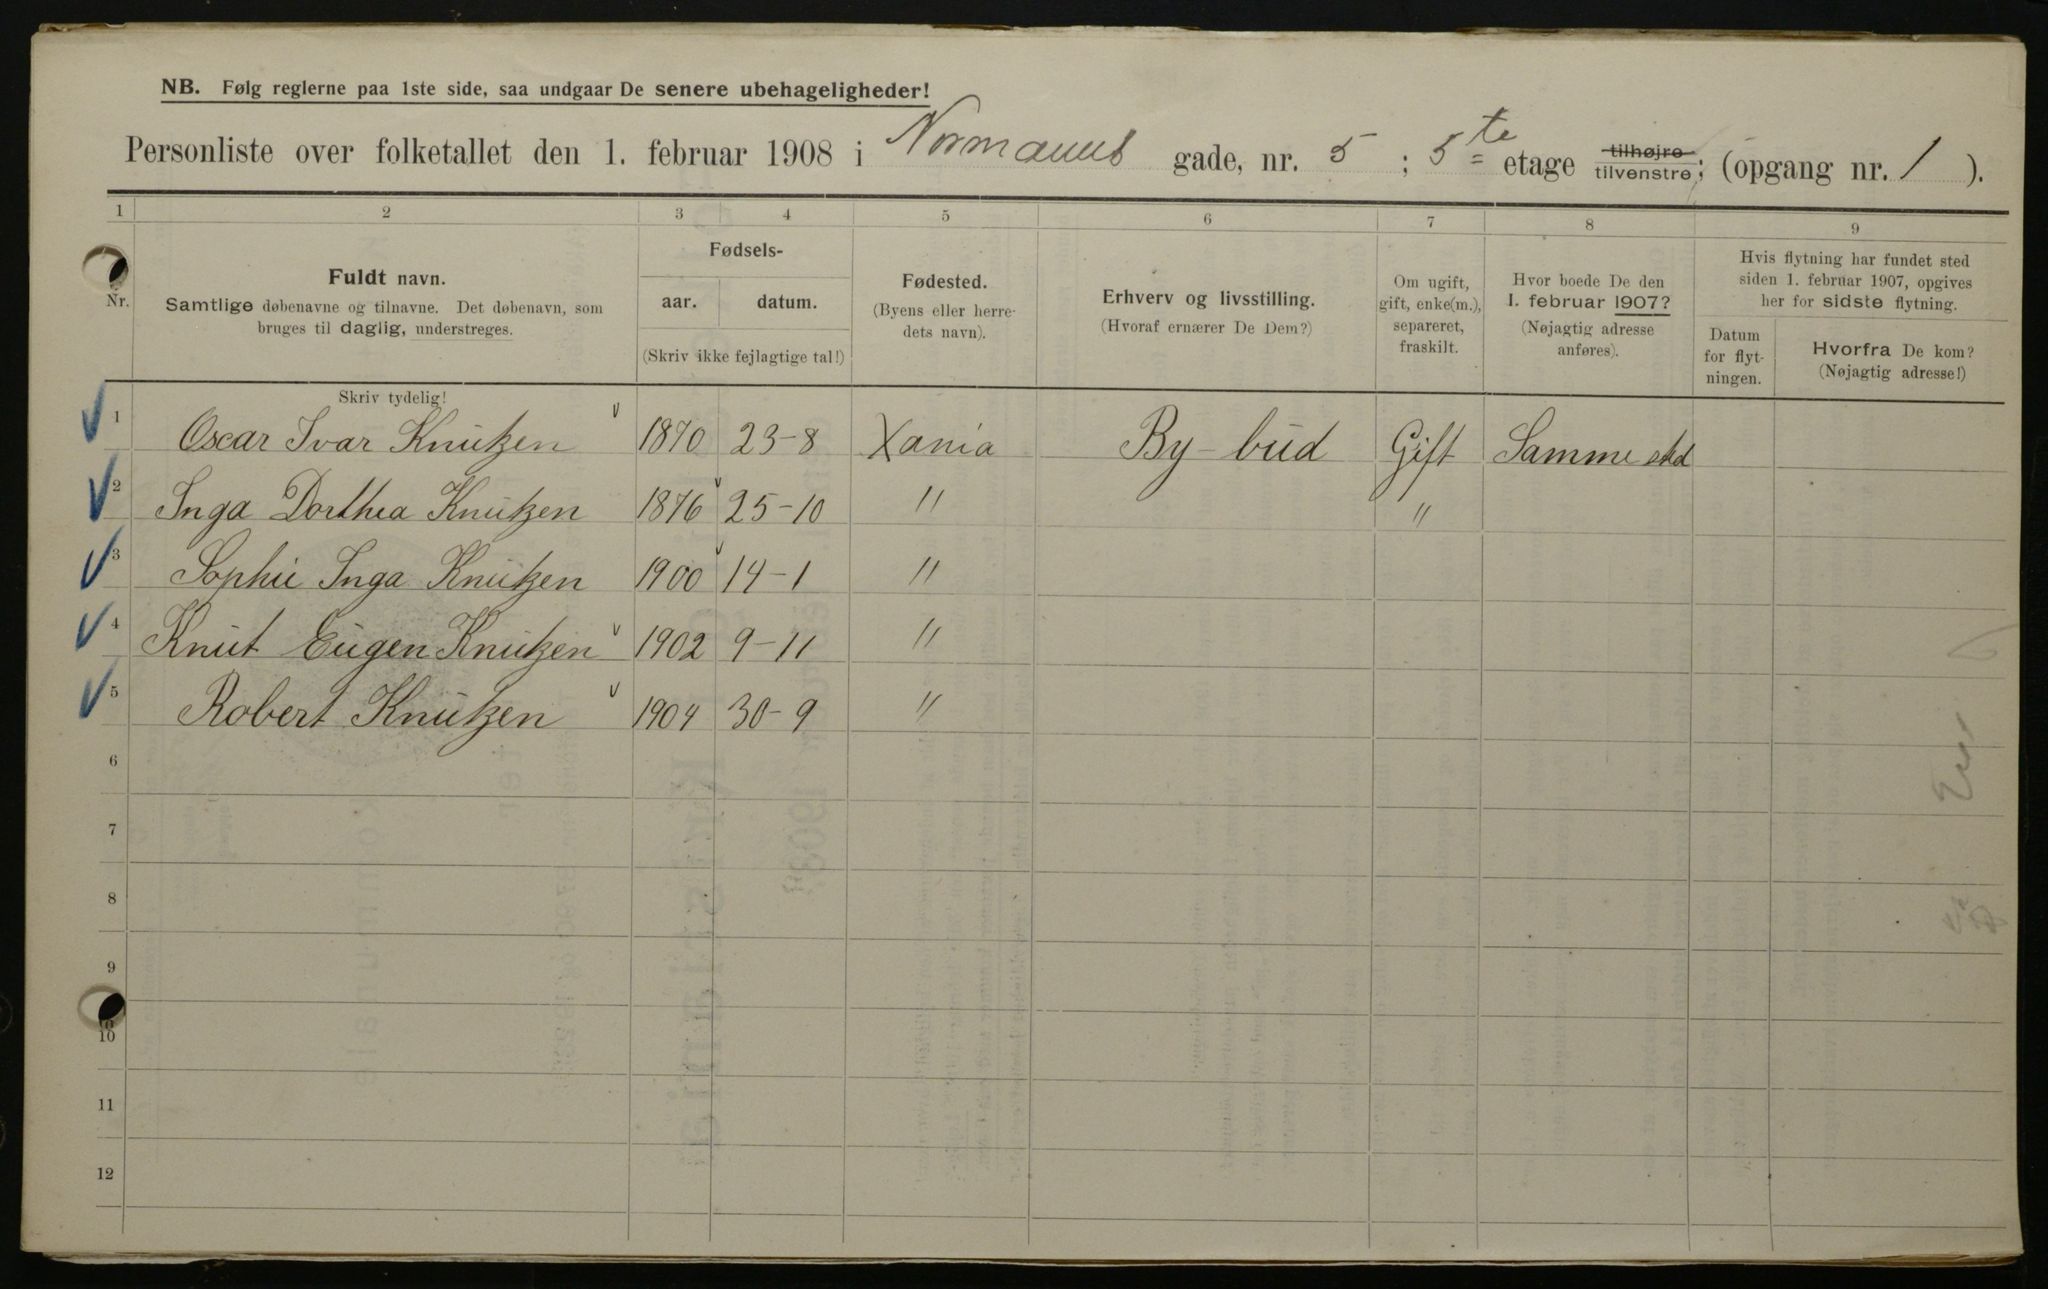 NB. Følg reglerne paa 1ste side, saa undgaar De senere ubehageligheder!
Personliste over folketallet den 1. februar 1908 i Normanns gade, nr. 5 ; 5te etage tilhøjre tilvenstre; (opgang nr. 1 ).
1 2 3 4 5 6 7 8 9
Nr.
Fuldt navn.
Samtlige døbenavne og tilnavne. Det døbenavn, som
bruges til daglig, understreges.
Fødsels-
aar. datum.
(Skriv ikke fejlagtige tal!)
Fødested.
(Byens eller herre-
dets navn).
Erhverv og livsstilling.
(Hvoraf ernærer De Dem?)
Om ugift,
gift, enke(m.),
separeret,
fraskilt.
Hvor boede De den
1. februar 1907?
(Nøjagtig adresse
anføres).
Hvis flytning har fundet sted
siden 1. februar 1907, opgives
her for sidste flytning.
Datum
for flyt-
ningen.
Hvorfra De kom?
(Nøjagtig adresse!)
Skriv tydelig!
1 Oscar Ivar Knutzen 1870 23-8 Xania By-bud Gift Samme sted
2 Inga Dorthea Knutzen 1876 25-10 " "
3 Sophie Inga Knutzen 1900 14-1 "
4 Knut Eugen Knutzen 1902 9-11 "
5 Robert Knutzen 1904 30-9 "
6
7
8
9
10
11
12